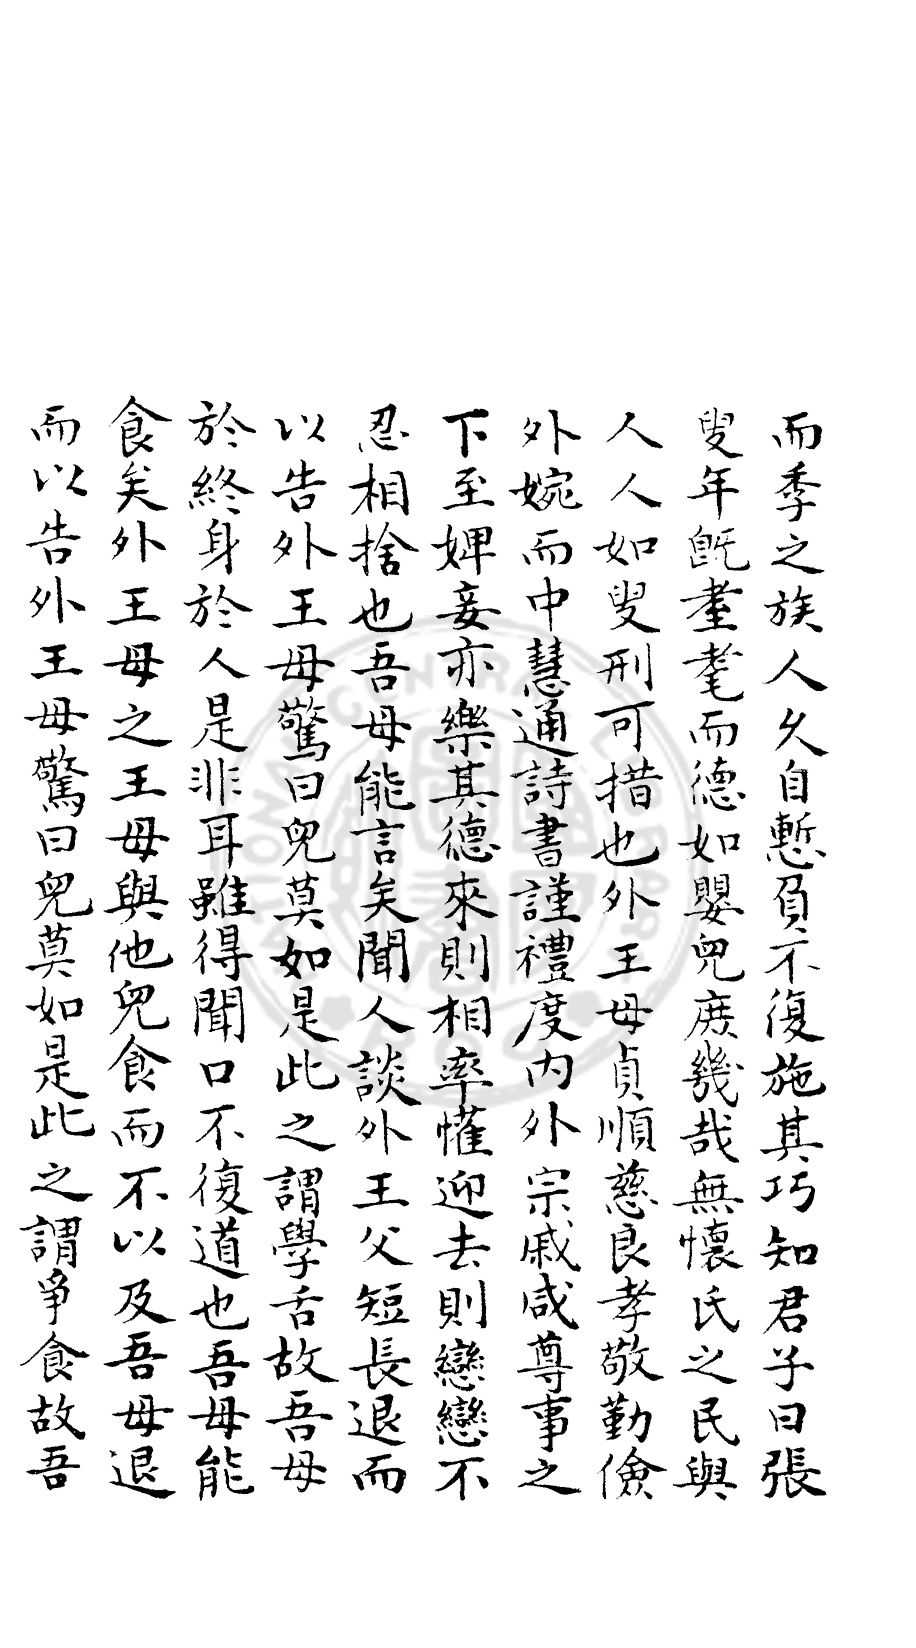 而季之族人久自慙負不復施其巧知君子曰張
叟年旣耋耄而德如嬰兒庶幾哉無懷氏之民與
人人如叟刑可措也外王母貞順慈良孝敬勤儉
外婉而中慧通詩書謹禮度內外宗戚咸尊事之
下至婢妾亦樂其德來則相率懽迎去則戀戀不
忍相捨也吾母能言矣聞人談外王父短長退而
以告外王母驚曰兒莫如是此之謂學舌故吾母
於終身於人是非耳雖得聞口不復道也吾母能
食矣外王母之王母與他兒食而不以及吾母退
而以告外王母驚曰兒莫如是此之謂爭食故吾